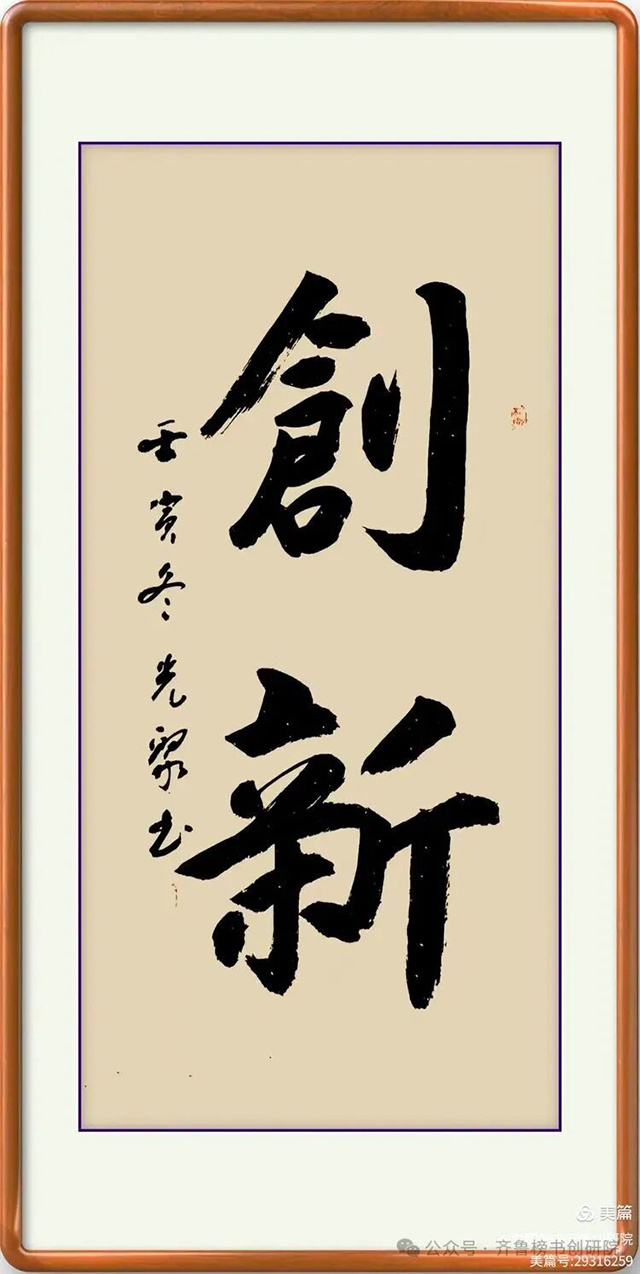 創新
壬寅冬光聚书
美篇
公众号·齐鲁榜书创研院
美篇号:29316259